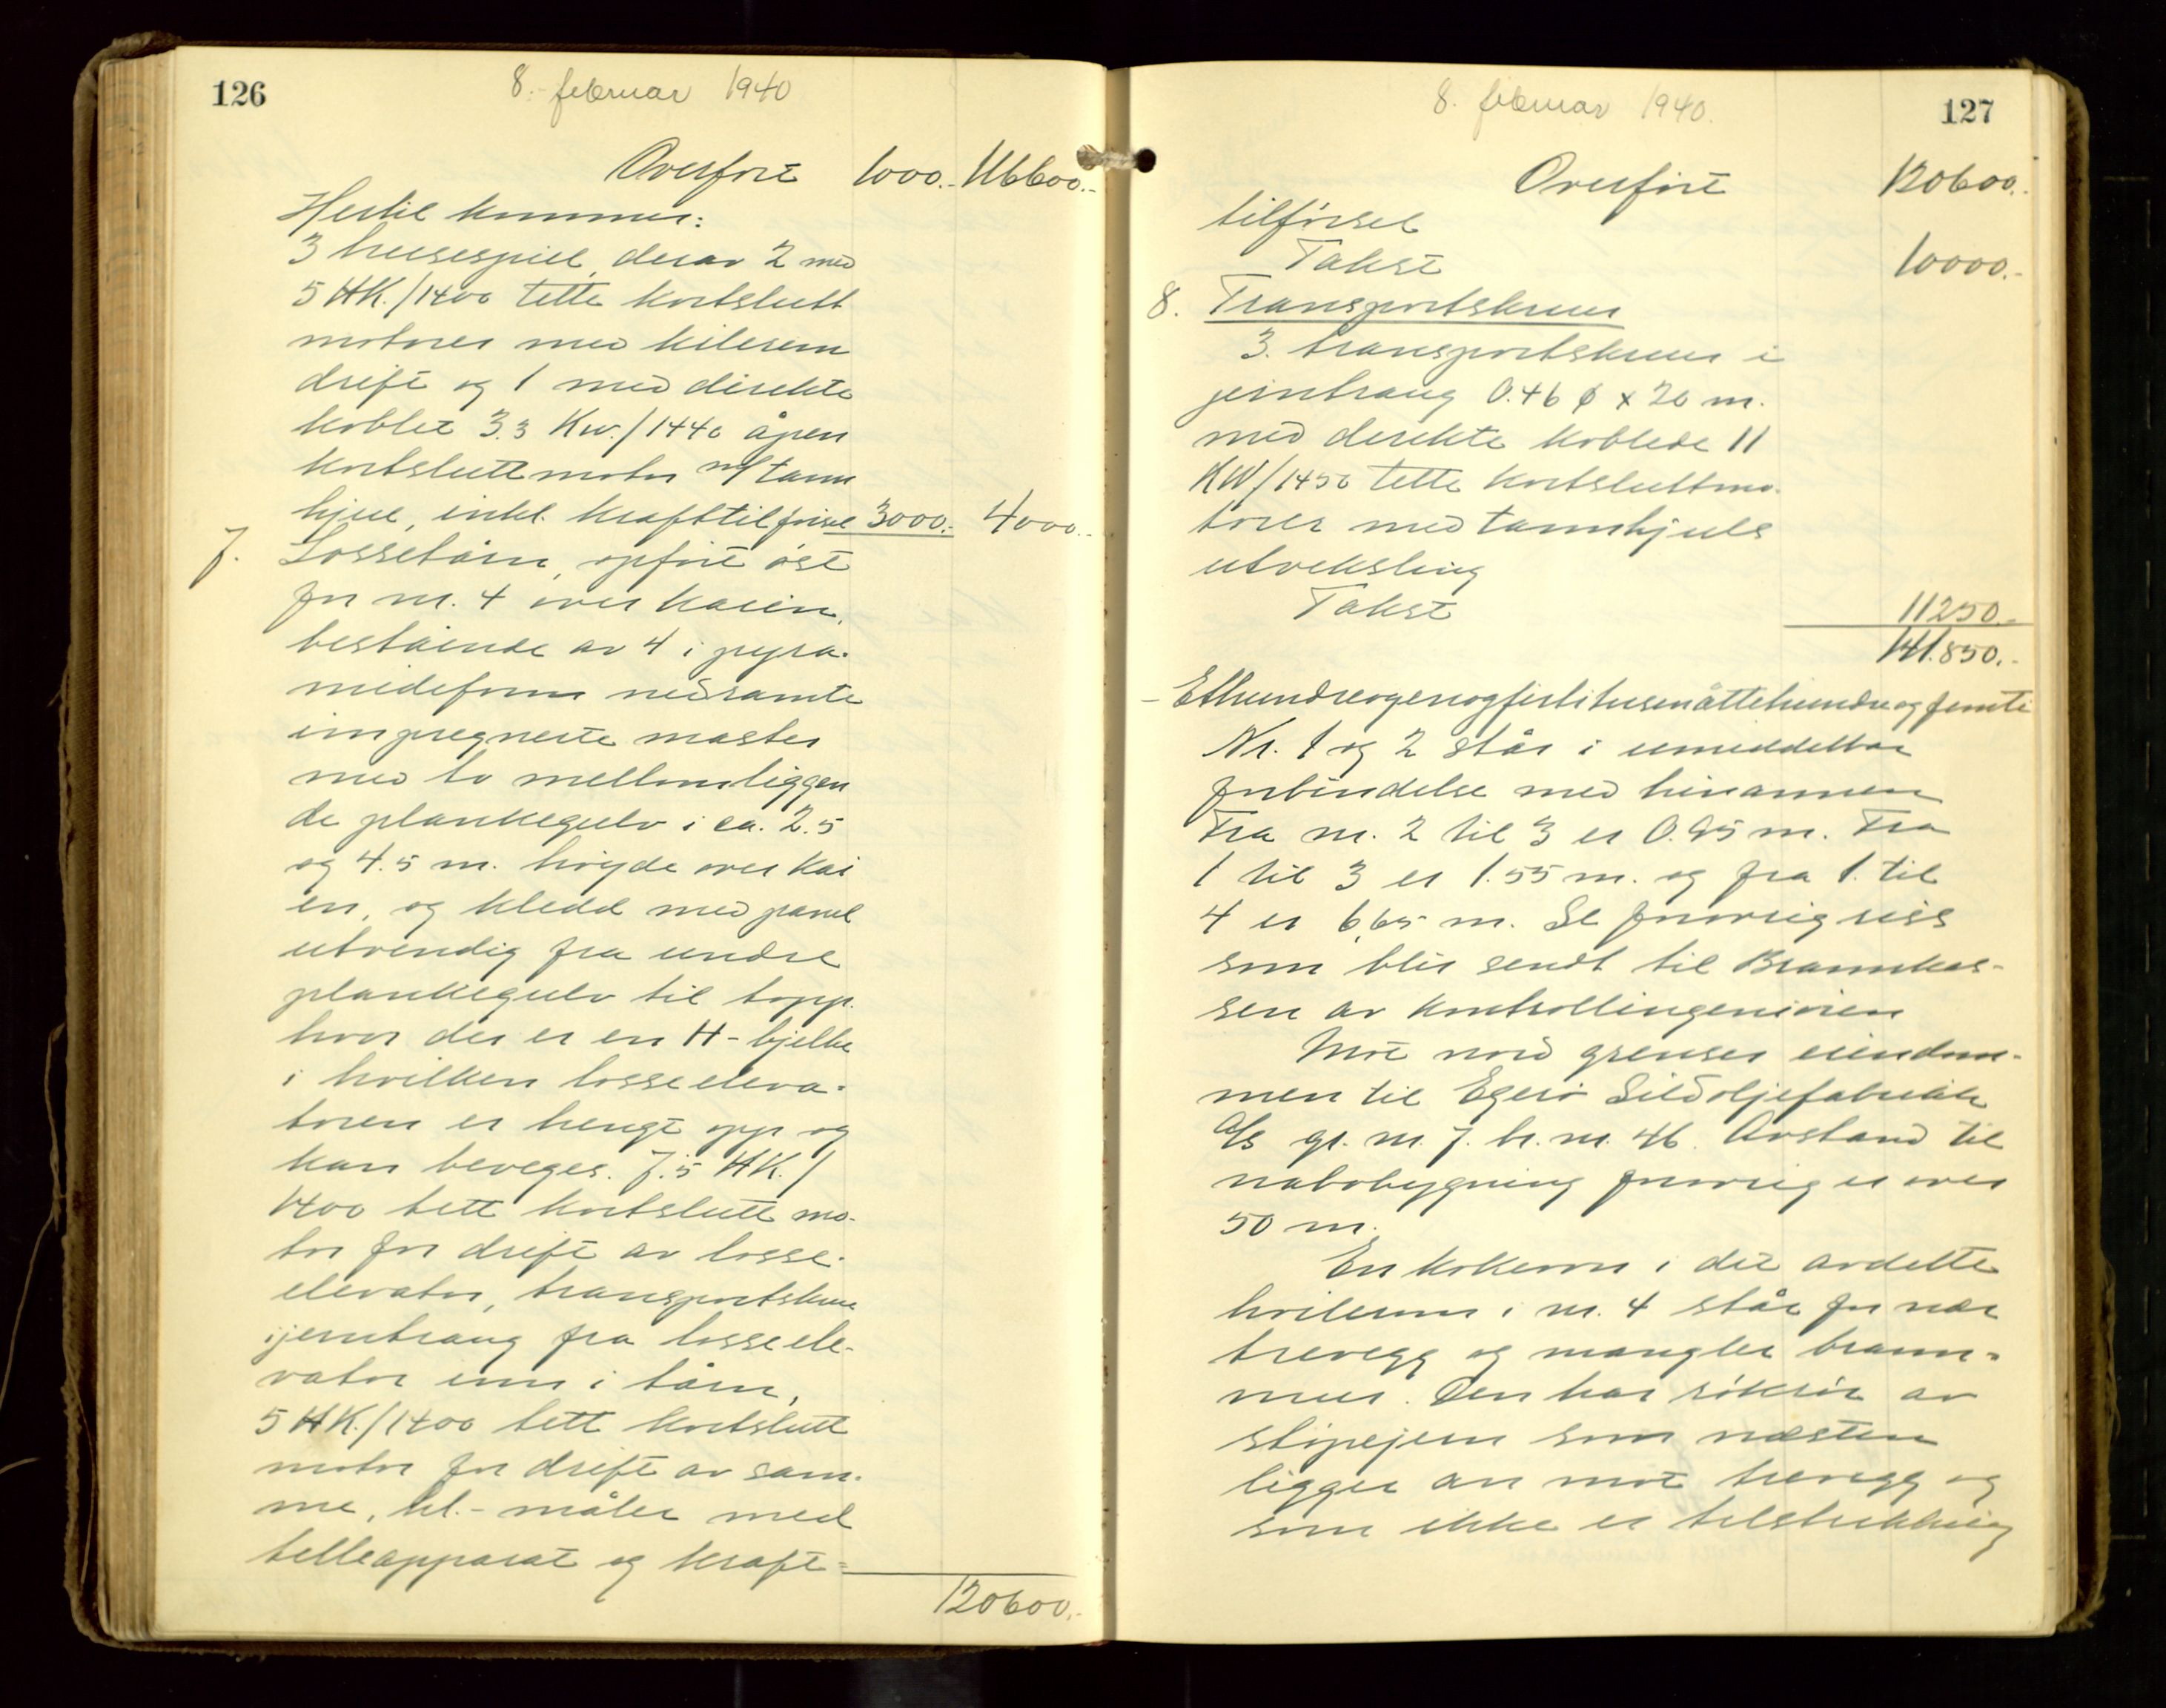 126
8. februar 1940
Overført 1000.- 116600.-
Hertil kommer:
3 heisespill, derav 2 med
5 HK./1400 tette kortslutt
motorer med kilerem
drift og 1 med direkte
koblet 3.3 Kw./1440 åpen
kortslutt motor m/tann
hjul, inkl. krafttilførsel 3000.- 4000.-
7. Lossetårn, opført øst
for nr. 4 over kaien,
bestående av 4 i pyra-
mideform nedramte
impregnerte master
med to mellomliggen
de plankegulv i ca. 2.5
og 4.5 m. høyde over kai
en, og kledd med panel
utvendig fra undre
plankegulv til topp.
hvor der er en H-bjelke
i hvilken losseeleva-
toren er hengt opp og
kan beveges. 7.5 HK./
1400 tett kortslutt mo-
tor for drift av losse-
elevator, transportskrue
i jerntraug fra losseele-
vator inn i tårn,
5 HK./1400 tett kortslutt
motor for drift av sam-
me, hl.-måler med
telleapparat og kraft-
120600.-
127
8. februar 1940.
Overført 120600.-
tilførsel
Takst 10000.-
8. Transportskruer
3. transportskruer i
jerntraug 0.46 φ x 20 m.
med direkte koblede 11
KW/1450 tette kortsluttmo-
torer med tannhjuls
utveksling
Takst 11250.-
141.850.-
- Etthundreogenogførtitusenåttehundreogfemti
Nr. 1 og 2 står i umiddelbar
forbindelse med hinannen
Fra nr. 2 til 3 er 0.95 m. Fra
1 til 3 er 1.55 m. og fra 1. til
4 er 6,65 m. Se forøvrig riss
som blir sendt til Brannkas-
sen av kontrollingeniøren
Mot nord grenser eiendom-
men til Egerø Sildoljefabrikk
A/S gr. nr. 7. br. nr. 46. Avstand til
nabobygning forøvrig er over
50 m.
En kokeovn i det avdelte
hvilerum i nr. 4 står for nær
trevegg og mangler brann-
mur. Den har røkrør av
støpejern som næsten
ligger an mot trevegg og
som ikke er tilstrekkelig